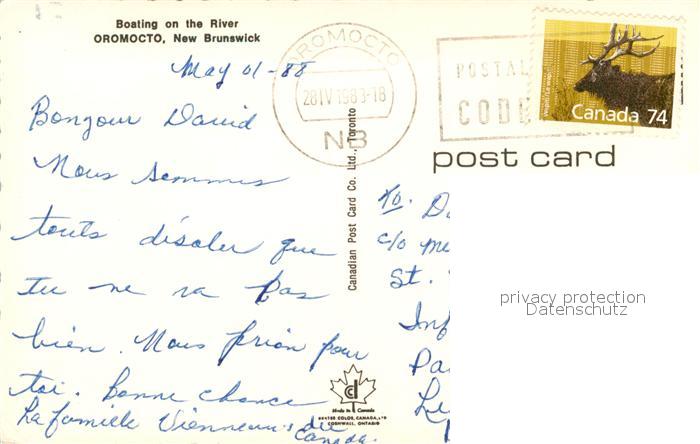 Boating on the River
OROMOCTO, New Brunswick
May 01-88
OROMOCTO
28 IV 1988-18
NB
POSTAL
CODE
Canada 74
post card
Bonjour David
Nous sommes
touts désoler que
tu ne va pas
bien. Nous prion pour
toi. Bonne chance
La famille Vienneau's du
Canada.
Canadian Post Card Co. Ltd., Toronto
To. D
c/o Me
St.
Inf
Pa
privacy protection
Datenschutz
Made in Canada
COLOR, CANADA, LTD
CORNWALL, ONTARIO